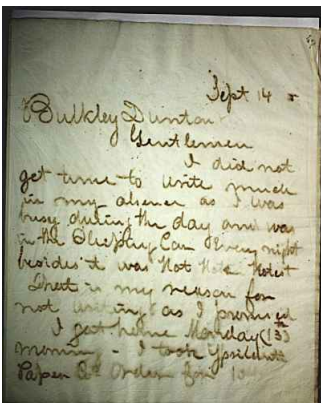 Sept 14
Bulkley Dunton
Gentlemen
I did not
get time to write much
in my absence as I was
busy during the day and was
in the Sleeping Car Every night
besides it was Hot Hot Hotest
that is my reason for
not writing as I promised
I got home Monday (13th)
morning - I took Ypsilanti
Paper Co Order for